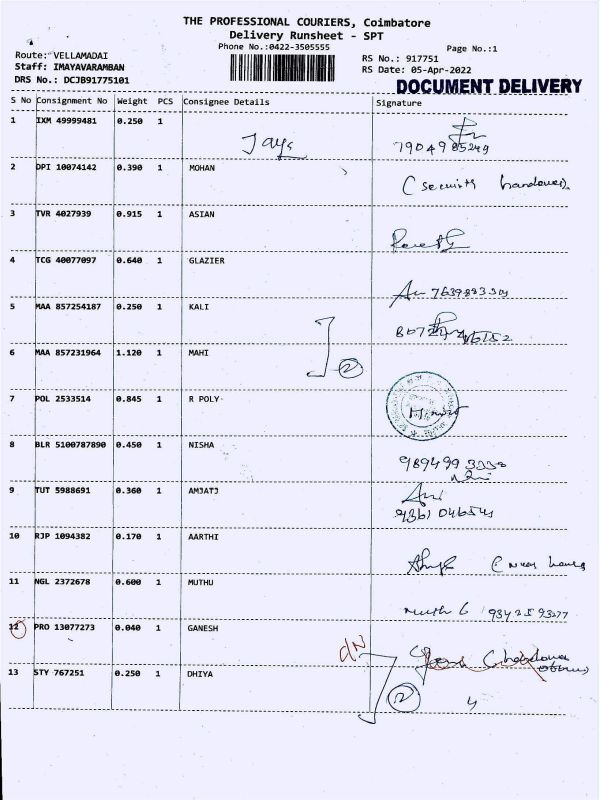 THE PROFESSIONAL COURIERS, Coimbatore
Delivery Runsheet - SPT
Phone No.:0422-3505555
Page No.:1
Route: VELLAMADAI
Staff: IMAYAVARAMBAN
DRS No.: DCJB91775101
RS No.: 917751
RS Date: 05-Apr-2022
DOCUMENT DELIVERY
S No Consignment No Weight PCS Consignee Details Signature
1 IXM 49999481 0.250 1
Jays
7904985249
2 DPI 10074142 0.390 1 MOHAN
(security handover)
3 TVR 4027939 0.915 1 ASIAN
4 TCG 40077097 0.640 1 GLAZIER
5 MAA 857254187 0.250 1 KALI
6 MAA 857231964 1.120 1 MAHI
2
7 POL 2533514 0.845 1 R POLY
8 BLR 5100787890 0.450 1 NISHA
9 TUT 5988691 0.360 1 AMJATJ
10 RJP 1094382 0.170 1 AARTHI
11 NGL 2372678 0.600 1 MUTHU
12 PRO 13077273 0.040 1 GANESH
DN
13 STY 767251 0.250 1 DHIYA
2